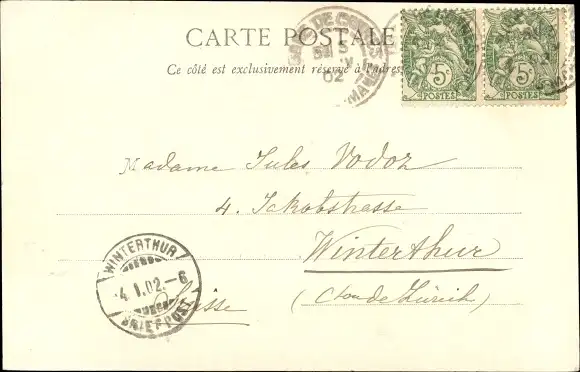 CARTE POSTALE
Ce côté est exclusivement réservé à l'adres
5c 5c
POSTES POSTES
Madame Jules Vodoz
4. Jakobstrasse
Winterthur
Suisse (Cton de Zürich)
WINTERTHUR
-4.I.02.-6
BRIEFPOST